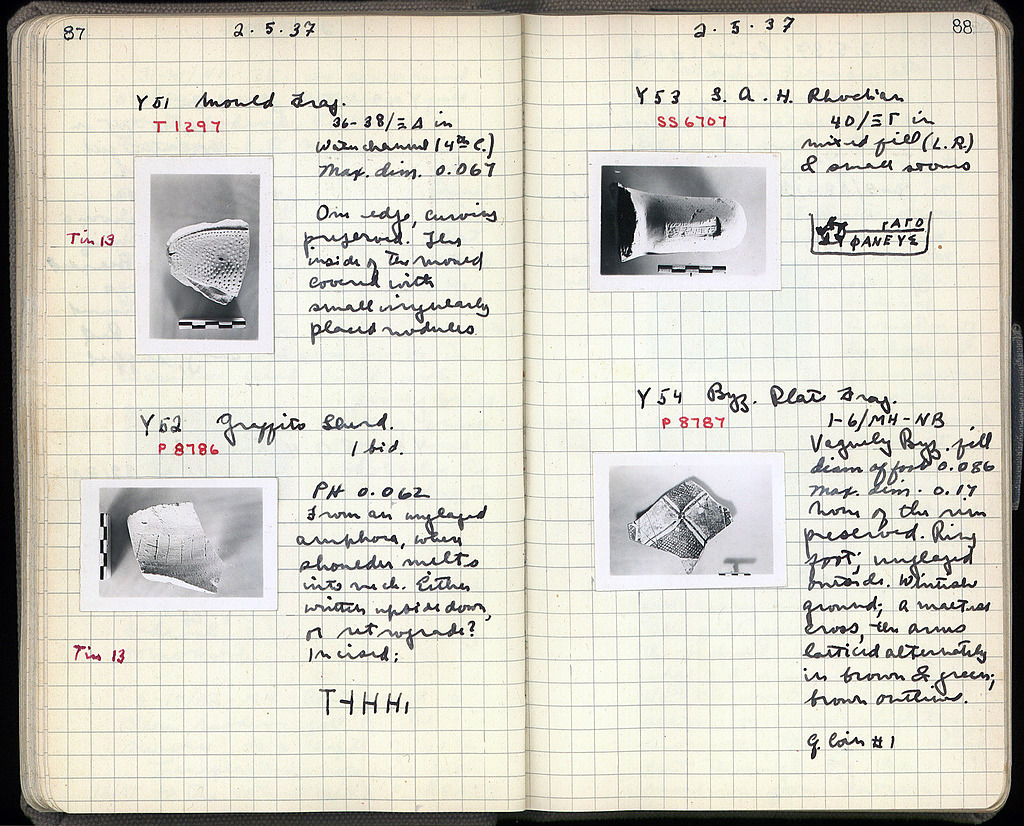 87
2.5.37
Y 51 Mould Frag.
T 1297
36-38/ΞΔ in
Waterchannel (4th C.)
Max. dim. 0.067
Tin 13
One edge, curving
preserved. The
inside of the mould
covered with
small irregularly
placed nodules
Y 52 Graffito Sherd.
P 8786
1 bid.
PH 0.062
From an unglazed
amphora, where
shoulder melts
into neck. Either
written upside down,
or retrograde?
Incised:
Tin 13
88
2.5.37
Y 53 S.A.H. Rhodian
SS 6707
40/ΞΓ in
mixed fill (L.R.)
& small stones
ΓΑΓΟ
ΦΑΝΕΥΣ
Y 54 Byz. Plate Frag.
P 8787
1-6/ΜΗ-ΝΒ
Vaguely Byz. fill
diam of foot 0.086
Max. dim. 0.17
None of the rim
preserved. Ring
foot; unglazed
outside. Whitish
ground; a maltese
cross, the arms
latticed alternately
in brown & green;
brown outlines.
Coin #1